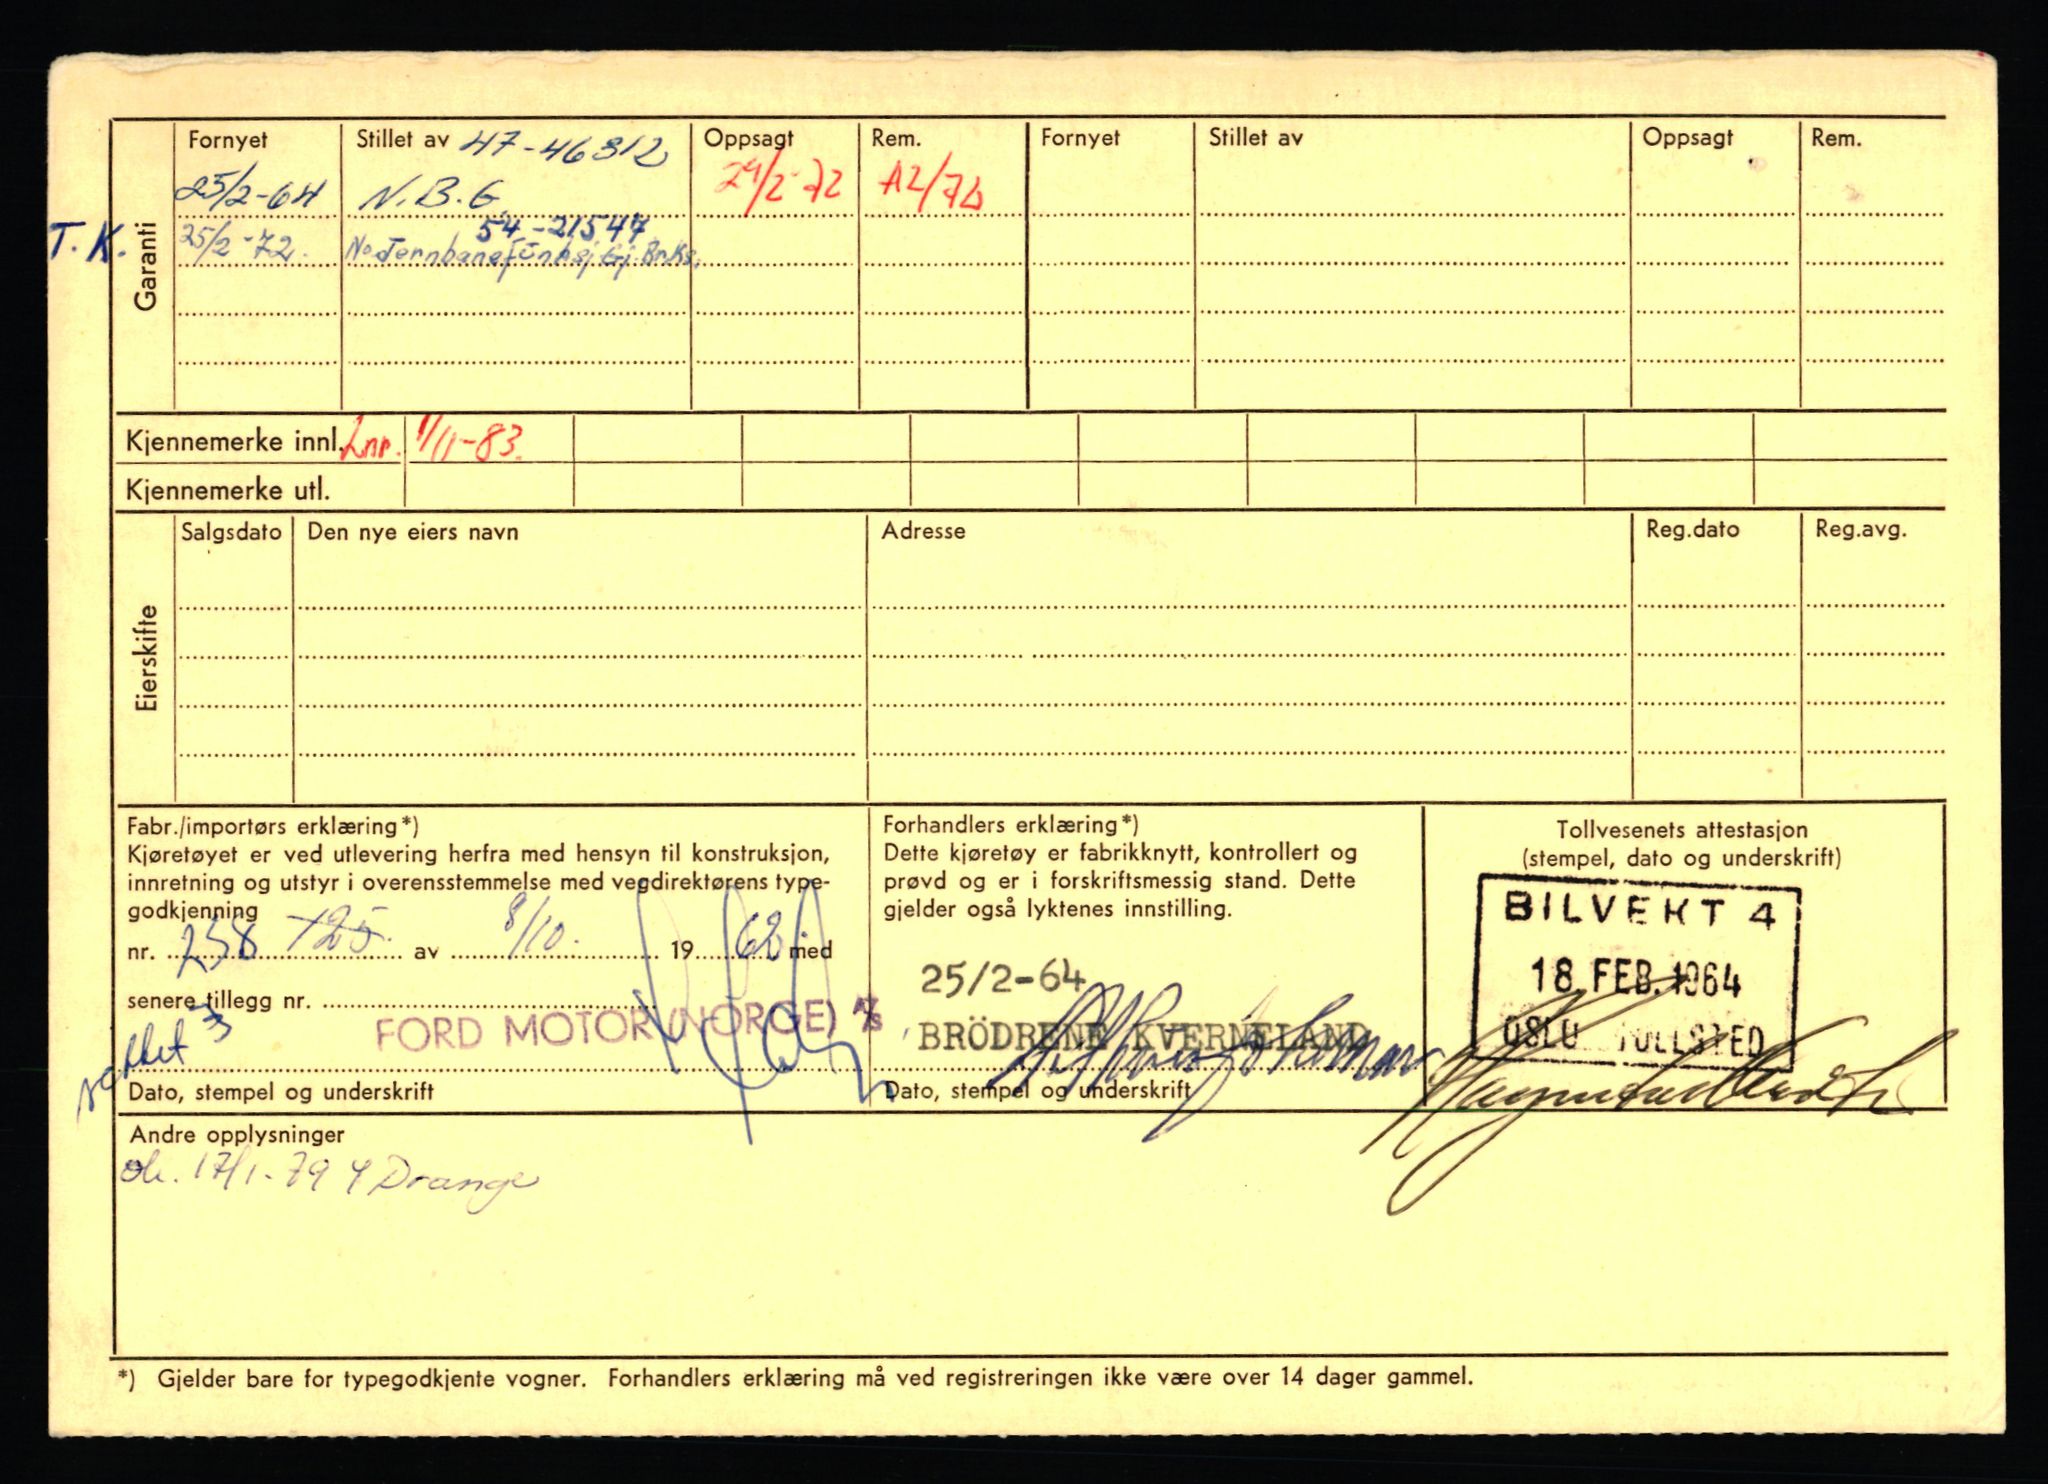 Garanti
Fornyet Stillet av 47-46312 Oppsagt Rem. Fornyet Stillet av Oppsagt Rem.
25/2-64 N.B.G 24/2-72 A2/72
54-21547
T.K. 25/2-72. No Jernbanef
Kjennemerke innl. Lnr. 1/11-83.
Kjennemerke utl.
Eierskifte
Salgsdato Den nye eiers navn Adresse Reg.dato Reg.avg.
Fabr./importørs erklæring*)
Kjøretøyet er ved utlevering herfra med hensyn til konstruksjon,
innretning og utstyr i overensstemmelse med vegdirektørens type-
godkjenning
nr. 238 125 av 8/10. 1962 med
senere tillegg nr.
FORD MOTOR (NORGE) A/S
Dato, stempel og underskrift
Forhandlers erklæring*)
Dette kjøretøy er fabrikknytt, kontrollert og
prøvd og er i forskriftsmessig stand. Dette
gjelder også lyktenes innstilling.
25/2-64
BRÖDRENE KVERNELAND
Dato, stempel og underskrift
Tollvesenets attestasjon
(stempel, dato og underskrift)
BILVEKT 4
18 FEB. 1964
OSLO TOLLSTED
Andre opplysninger
17/1-79 Y Drange
*) Gjelder bare for typegodkjente vogner. Forhandlers erklæring må ved registreringen ikke være over 14 dager gammel.